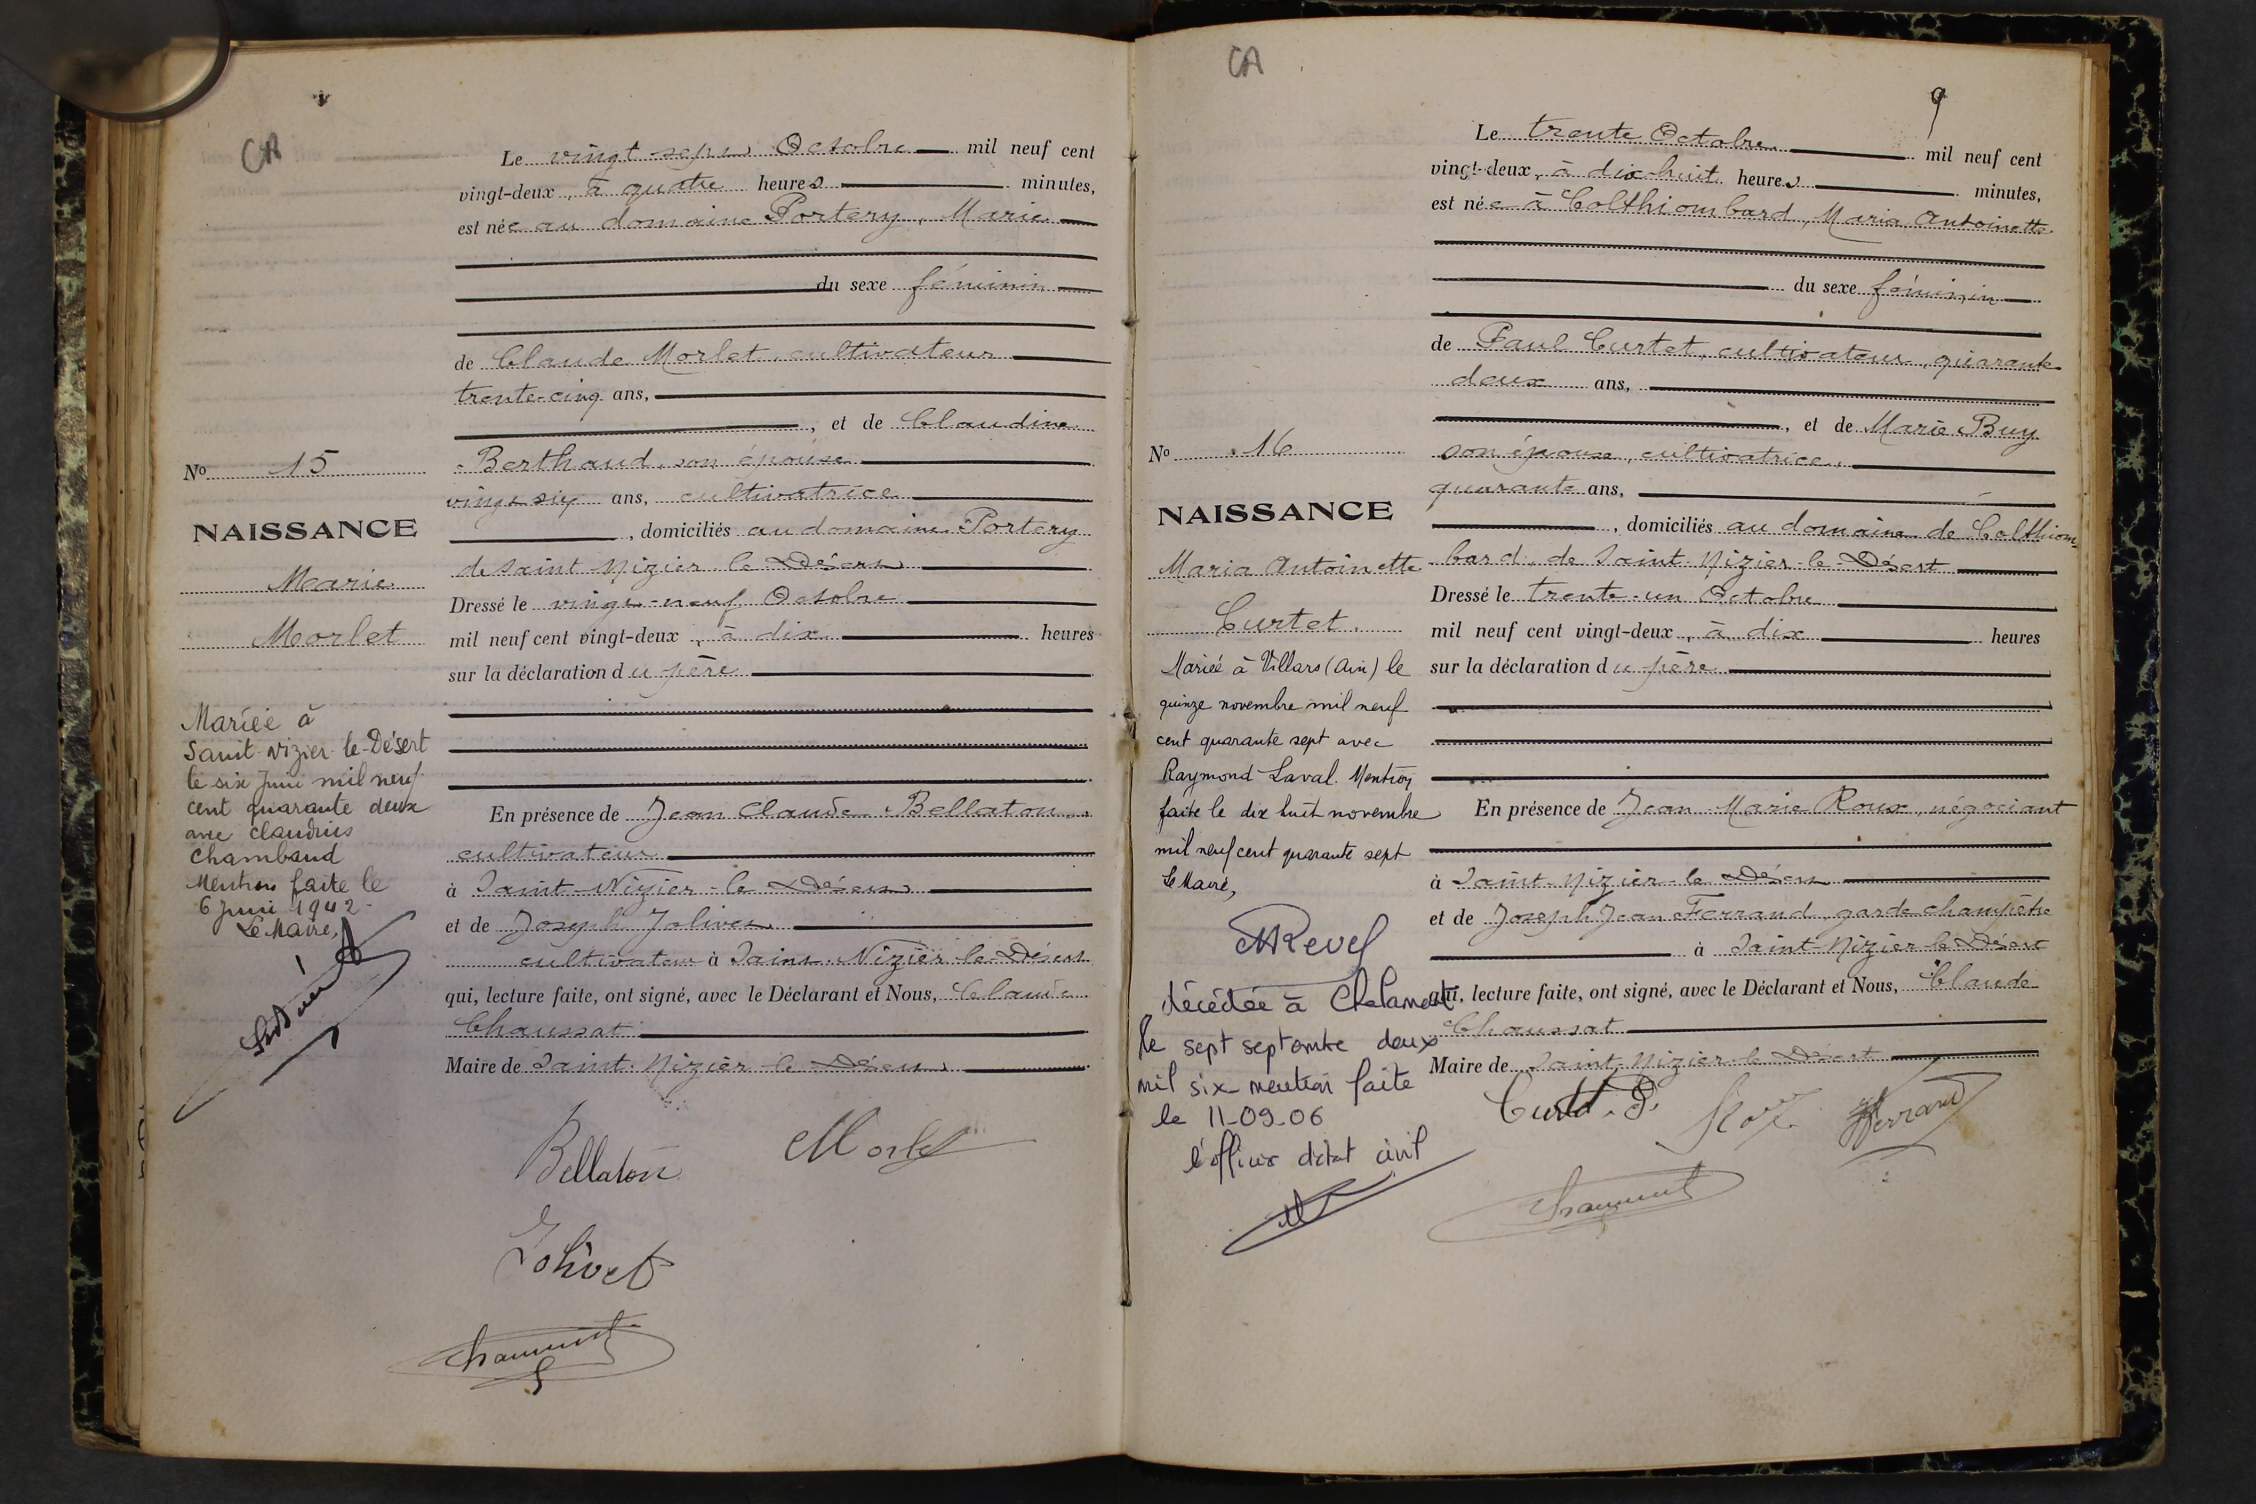 CA
Le vingt-sept Octobre mil neuf cent
vingt-deux, à quatre heures minutes,
est née au domaine Portery, Marie
du sexe féminin
de Claude Morlet, cultivateur
trente-cinq ans,
, et de Claudine
Berthaud, son épouse
vingt six ans, cultivatrice
, domiciliés au domaine Portery
de Saint Nizier le Désert
Dressé le vingt-neuf Octobre
mil neuf cent vingt-deux, à dix heures
sur la déclaration du père
En présence de Jean Claude Bellaton
cultivateur
à Saint-Nizier-le Désert
et de Joseph Jolivet
cultivateur à Saint-Nizier-le-Désert
qui, lecture faite, ont signé, avec le Déclarant et Nous, Claude
Chaussat
Maire de Saint-Nizier le Désert
Bellaton
Morlet
Jolivet
No 15
NAISSANCE
Marie
Morlet
Mariée à
Saint-Nizier-le-Désert
le six Juin mil neuf
cent quarante deux
avec Claudius
Chambaud
Mention faite le
6 Juin 1942-
Le Maire,
CA
9
Le trente Octobre mil neuf cent
vingt-deux, à dix huit heures minutes,
est née à Colthiombard, Maria Antoinette
du sexe féminin
de Paul Curtet, cultivateur, quarante
deux ans,
, et de Marie Buy
son épouse, cultivatrice,
quarante ans,
, domiciliés au domaine de Colthiom-
bard, de Saint-Nizier-le-Désert
Dressé le trente-un Octobre
mil neuf cent vingt-deux, à dix heures
sur la déclaration du père
En présence de Jean-Marie Roux, négociant
à Saint-Nizier-le Désert
et de Joseph Jean Ferrand, garde champêtre
à Saint-Nizier-le-Désert
qui, lecture faite, ont signé, avec le Déclarant et Nous, Claude
Chaussat
Maire de Saint-Nizier-le Désert
Curtet. P.
Roux
Ferrand
No 16
NAISSANCE
Maria Antoinette
Curtet.
Mariée à Villars (Ain) le
quinze novembre mil neuf
cent quarante sept avec
Raymond Laval. Mention
faite le dix huit novembre
mil neuf cent quarante sept
Le Maire,
Revel
décédée à Chalamont
le sept septembre deux
mil six mention faite
le 11-09-06
l'officier d'état civil